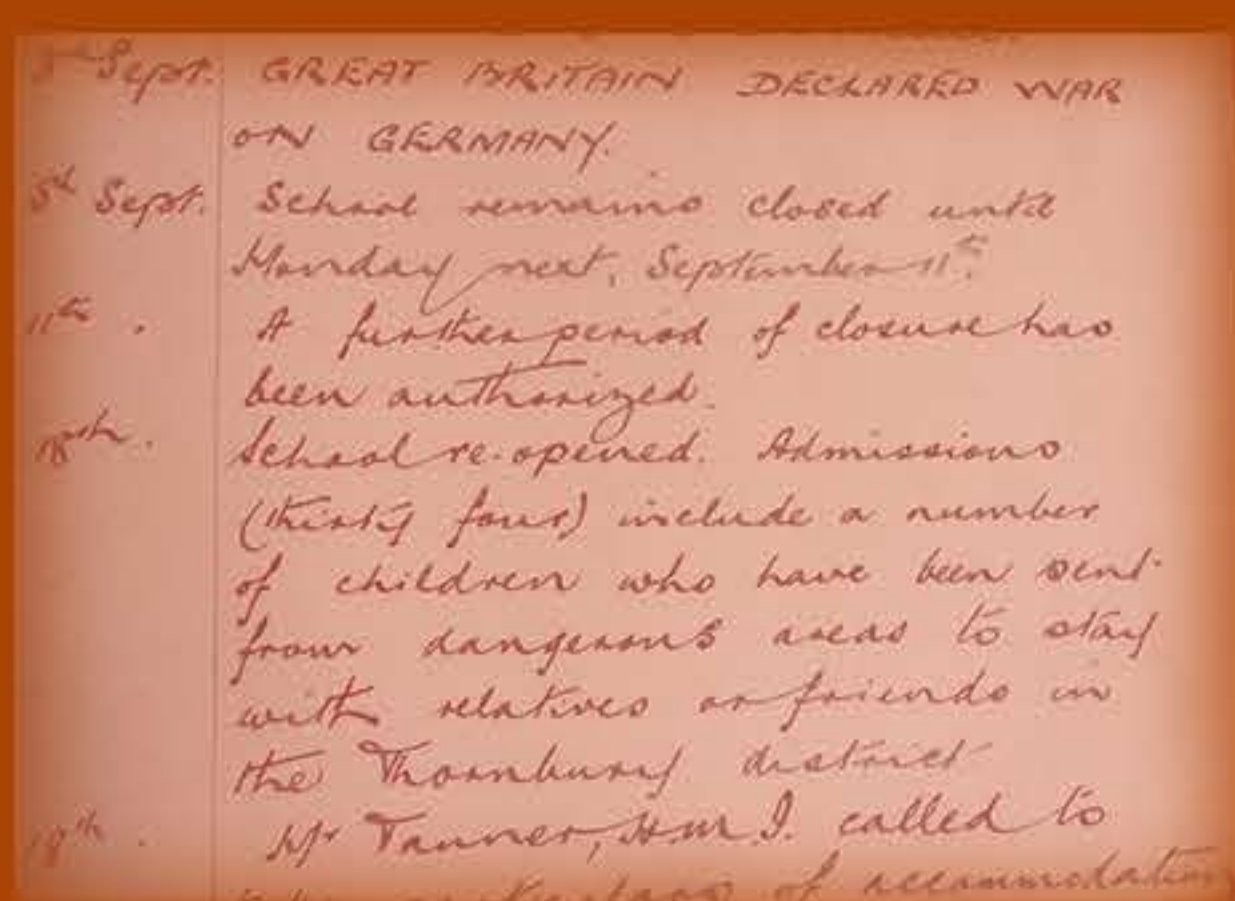 3rd Sept. GREAT BRITAIN DECLARED WAR
ON GERMANY.
5th Sept. School remains closed until
Monday next, September 11th.
11th . A further period of closure has
been authorized.
18th . School re-opened. Admissions
(thirty four) include a number
of children who have been sent
from dangerous areas to stay
with relatives or friends in
the Thornbury district
19th . Mr Tanner, H.M.I. called to
of accommodation